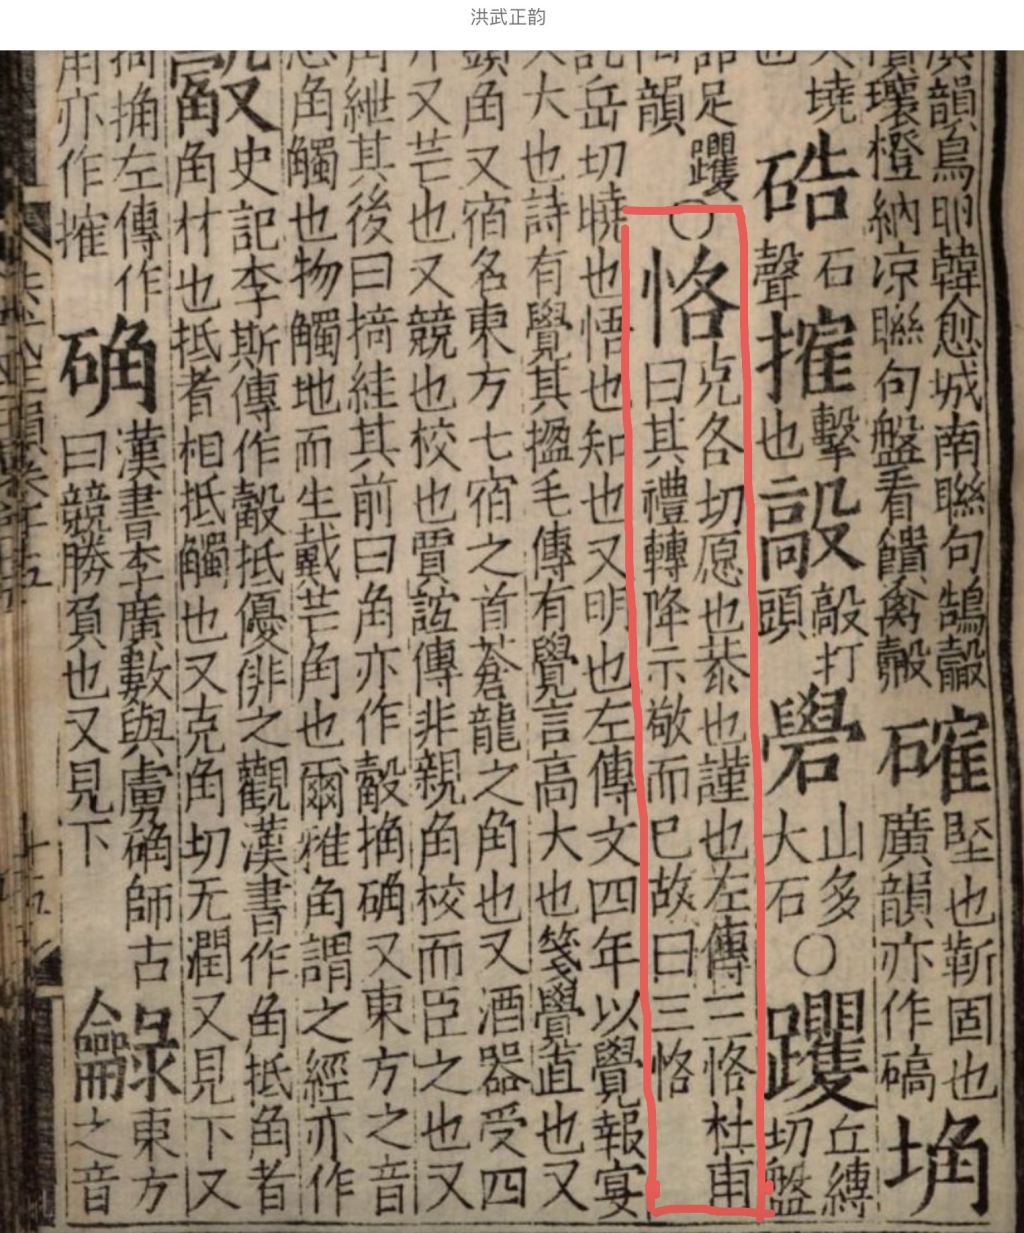 洪武正韵
廣韻鳥卵韓愈城南聯句鵠鷇
壤橙納凉聯句盤看饋禽鷇
確
堅也靳固也
廣韻亦作碻
埆
墝
也
硞
石
聲
搉
擊
也
毃
敲打
頭
礐
山多
大石
○
躩
丘縛
切盤
足躩
韻
○
恪
克各切愿也恭也謹也左傳三恪杜甫
曰其禮轉降示敬而已故曰三恪
訖岳切曉也悟也知也又明也左傳文四年以覺報宴
大也詩有覺其楹毛傳有覺言高大也箋覺直也又
頭角又宿名東方七宿之首蒼龍之角也又酒器受四
又芒也又競也校也賈誼傳非親角校而臣之也又
角紲其後曰掎絓其前曰角亦作觳捔确又東方之音
角觸也物觸地而生戴芒角也爾雅角謂之經亦作
又史記李斯傳作觳抵優俳之觀漢書作角抵角者
角材也抵者相抵觸也又克角切无潤又見下又
捔左傳作
角亦作搉
确
漢書李廣數與虜确師古
曰競勝負也又見下
龣
東方
之音